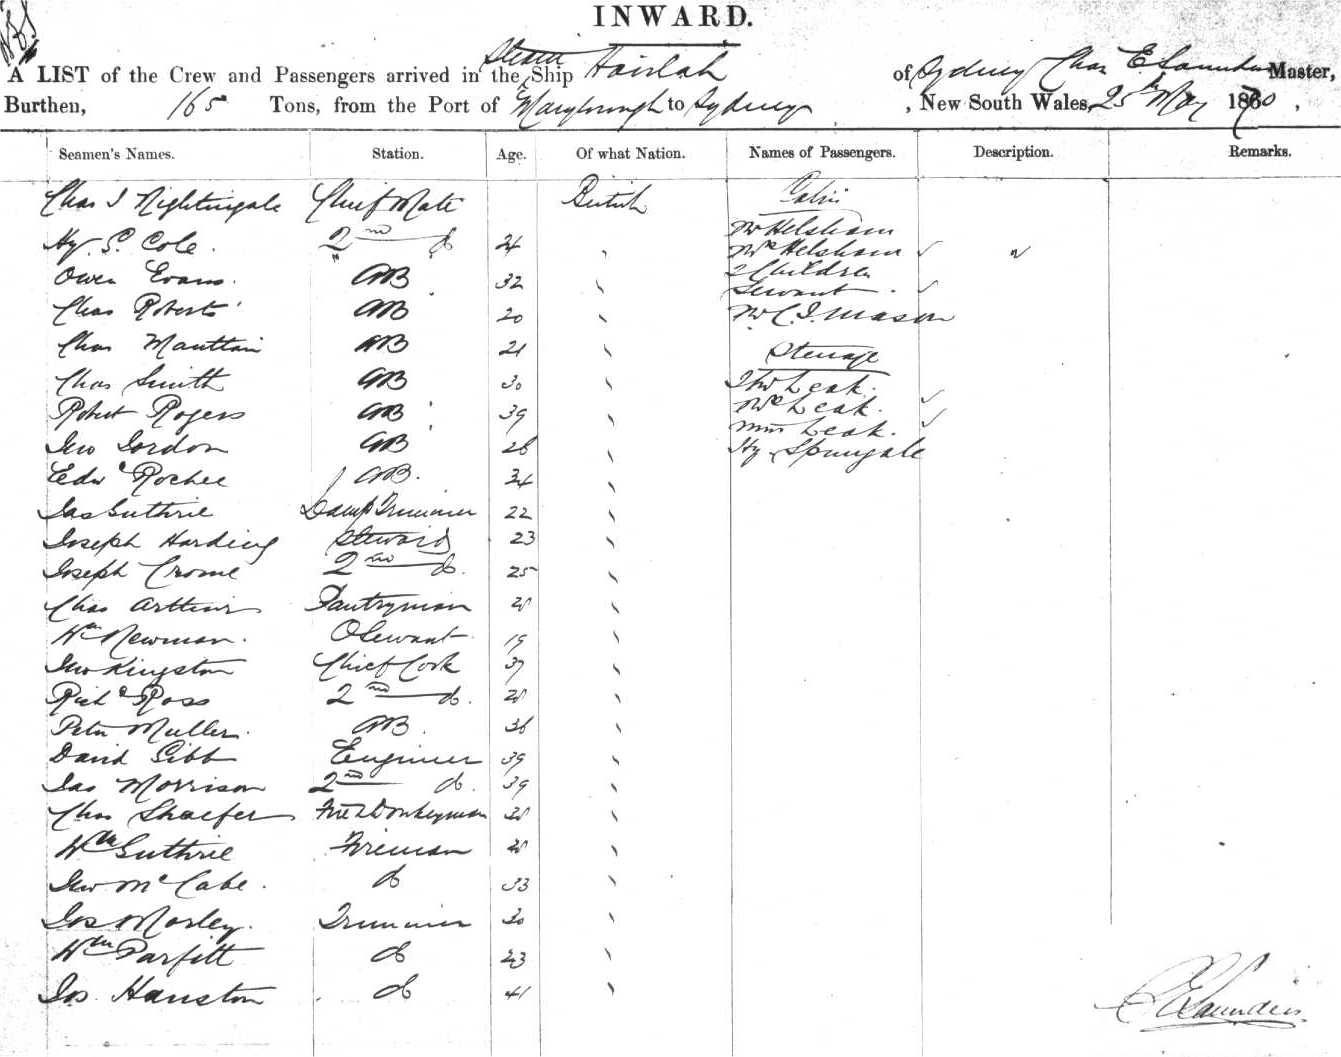 INWARD.
A LIST of the Crew and Passengers arrived in the Steam Ship of Sydney Chas E Saunders Master,
Burthen, 165 Tons, from the Port of Maryborough to Sydney, New South Wales, 25th May 1870,
Seamen's Names. Station. Age. Of what Nation. Names of Passengers. Description. Remarks.
Chas J Nightingale Chief Mate British Cabin
Mr Helsham
Hy S. Cole. 2nd do 24 Mrs Helsham
Owen Evans. AB 32 2 Children
Servant
Chas Roberts AB 20 Mr C. J. Mason
Chas AB 21 Steerage
Chas Smith AB 30 Leak.
Robert Rogers AB 39 Mrs Leak.
Miss Leak.
Jno Gordon AB 26 Hy
Edwd Rochee AB. 34
Jas Guthrie Lamp Trimmer 22
Joseph Harding Steward 23
Joseph Crome 2nd do. 25
Chas Arthur Pantryman
Wm Newman. Servant 19
Jno Kingston Chief Cook 37
Richd Ross 2nd do.
Peter Muller. AB. 36
David Gibb Engineer 39
Jas Morrison 2nd do. 39
Chas Shaefer Donkeyman
Wm Guthrie Fireman
Jno McCabe. do 33
Jos Morley. Trimmer 30
Wm Parfitt do 23
Jos. Hauston do 41
C E Saunders